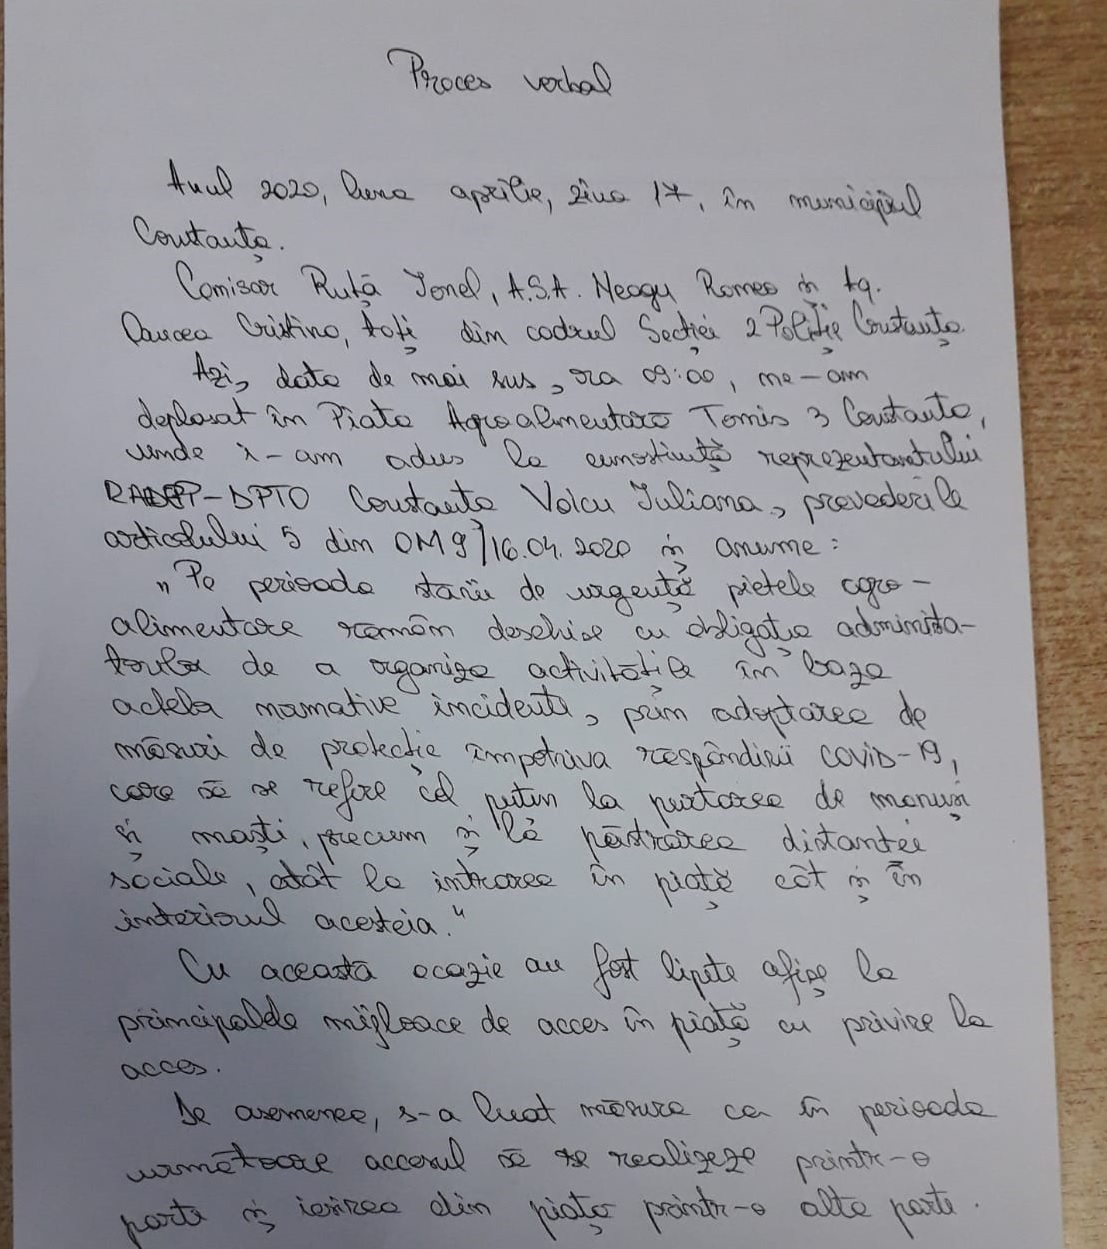 Proces verbal
Anul 2020, luna aprilie, ziua 17, în municipiul
Constanța.
Comisar Ruță Ionel, A.S.A. Neagu Romeo și Ag.
Cristina, toți din cadrul Secției 2 Poliție Constanța.
Azi, data de mai sus, ora 09:00, ne-am
deplasat în Piata Agroalimentara Tomis 3 Constanta,
unde i-am adus la cunostință reprezentantului
DPTO Constanta Voicu Iuliana, prevederile
articolului 5 din OM 9/16.04.2020 și anume:
„Pe perioada stării de urgență pietele agro-
alimentare rămân deschise cu obligația administra-
torilor de a organiza activitățile în baza
actelor normative incidente, prin adoptarea de
măsuri de protecție împotriva respândirii COVID-19,
care să se refere cel puțin la purtarea de mănuși
și maști, precum și la păstrarea distantei
sociale, atât la intrarea în piață cât și în
interiorul acesteia."
Cu această ocazie au fost lipite afișe la
principalele mijloace de acces în piață cu privire la
acces.
De asemenea, s-a luat măsura ca în perioada
următoare accesul să se realizeze printr-o
parte și ieșirea din piața printr-o alta parte.